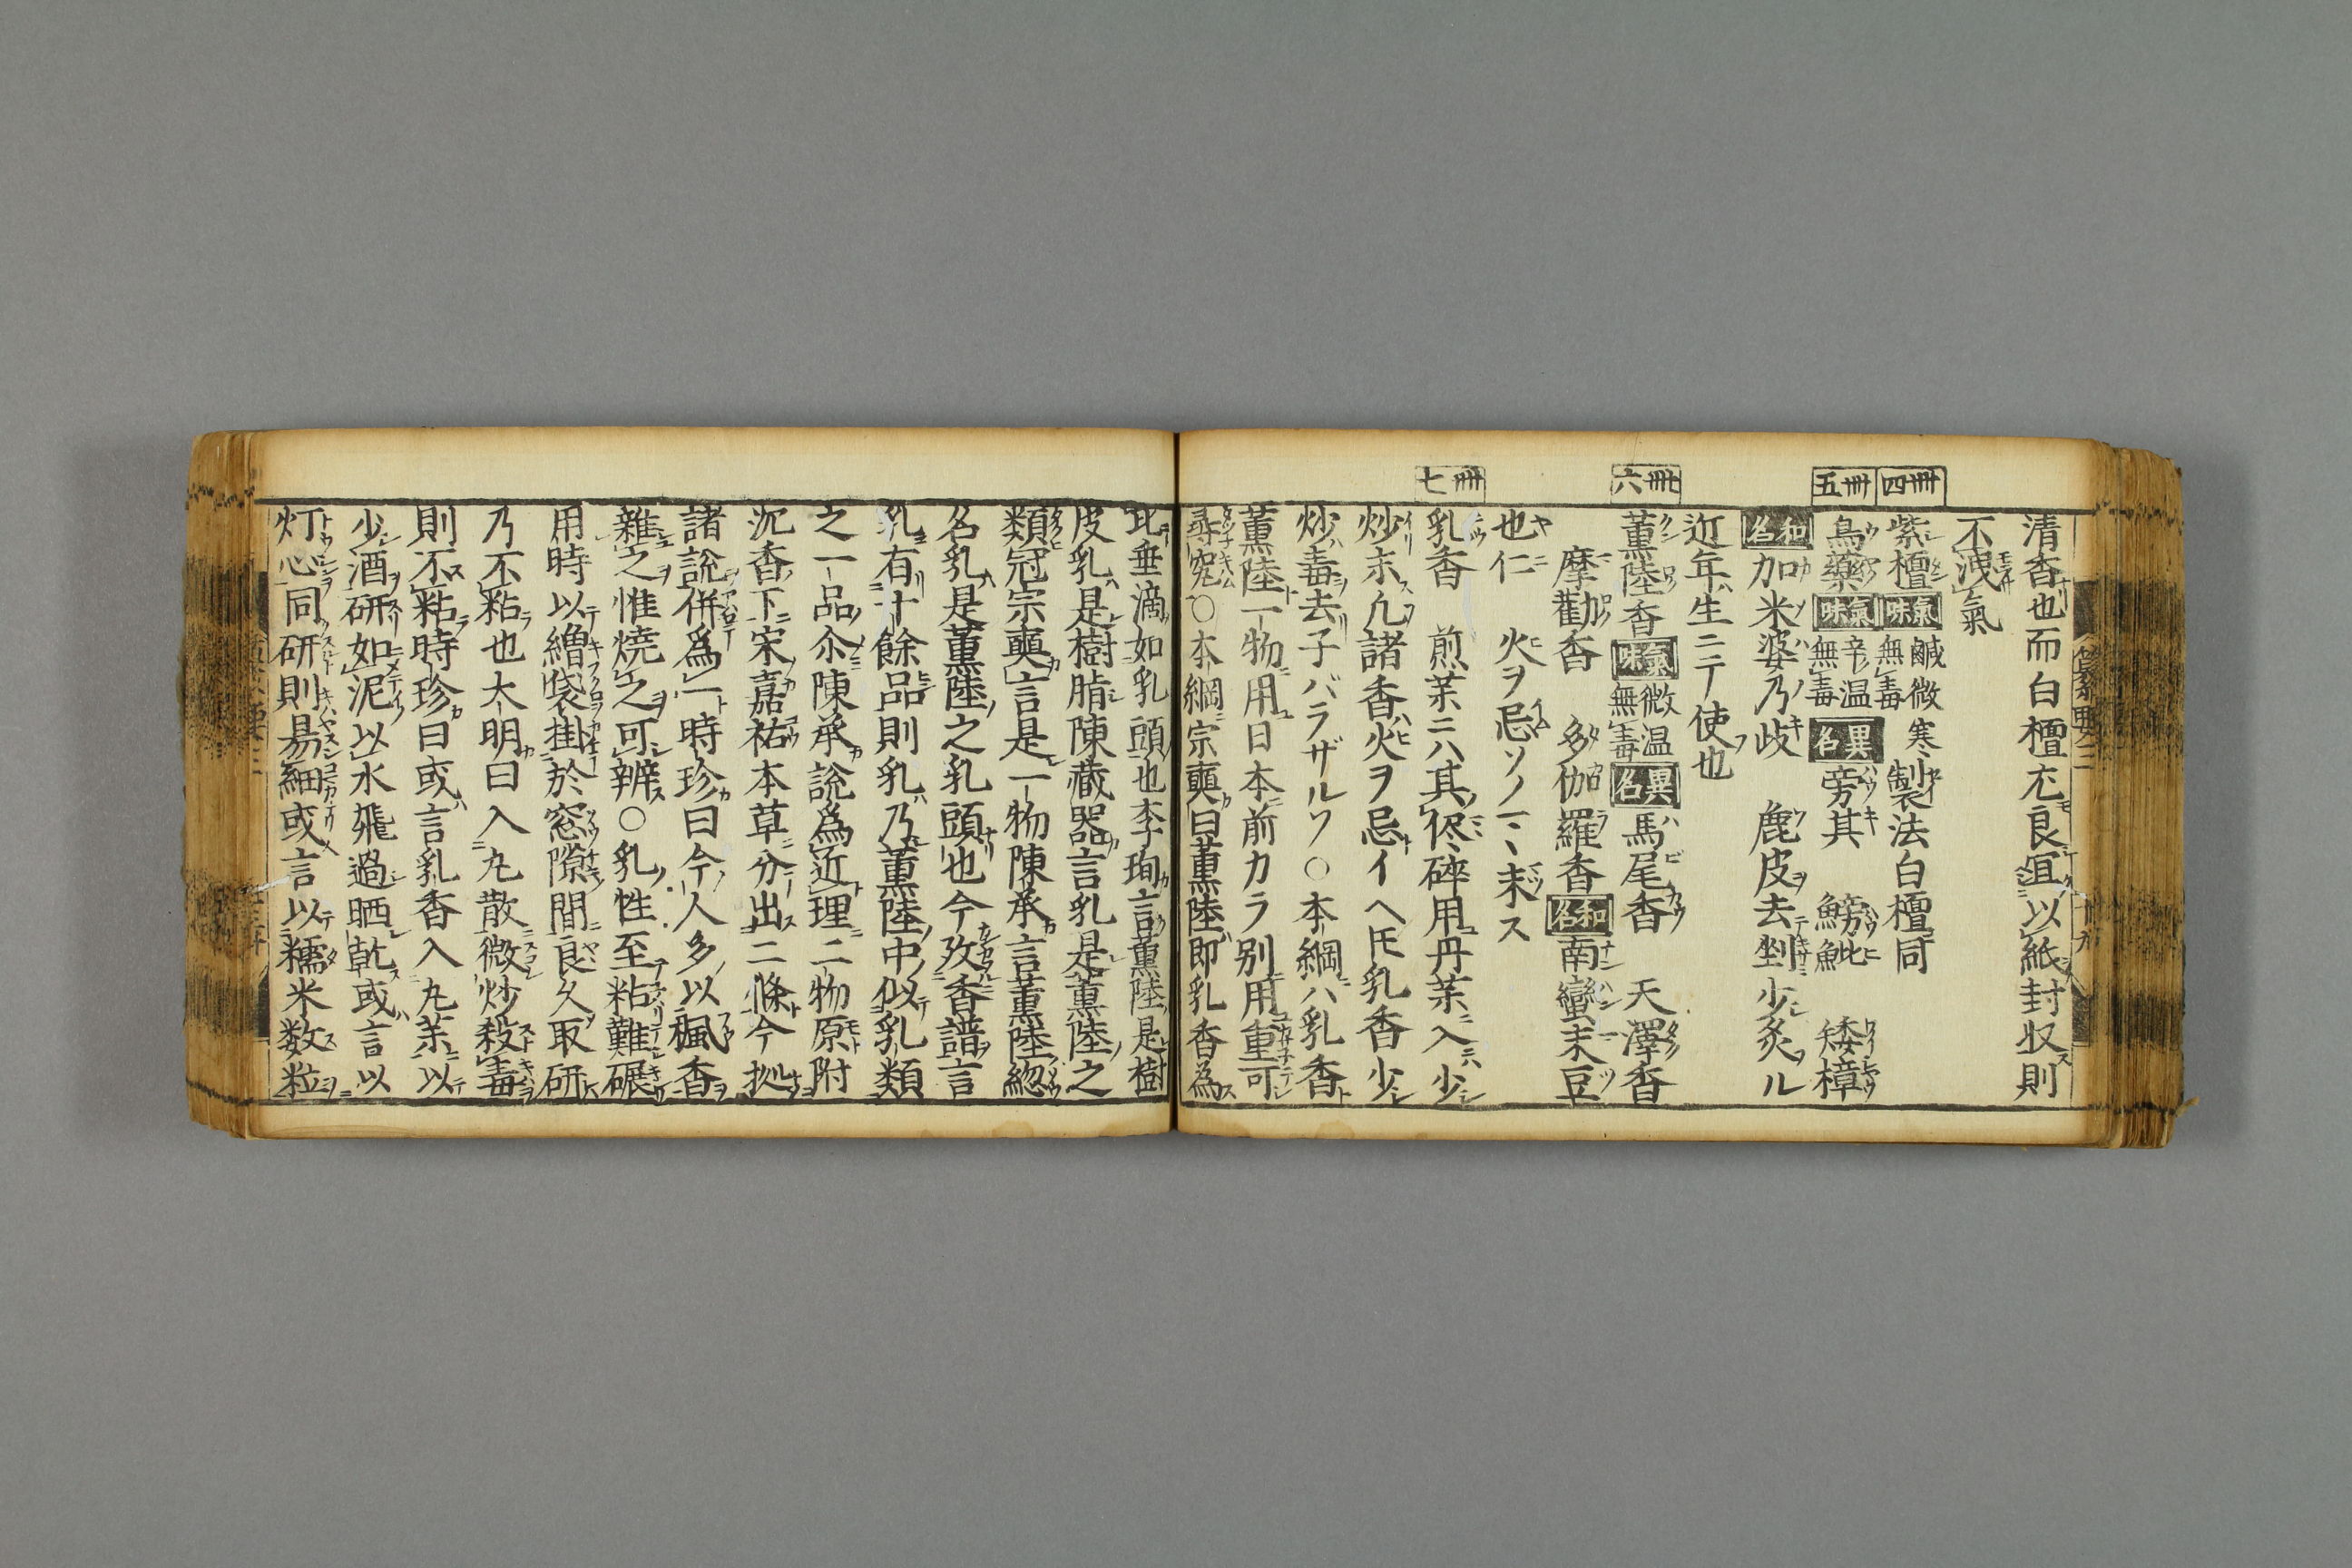 清香也而白檀尤良宜以紙封収則
不洩氣
卌四
紫檀 氣味 鹹微寒無毒 製法白檀同
卌五
烏藥 氣味 辛温無毒 異名 旁其 鰟魮 矮樟
和名 加米婆乃岐 鹿皮去剉少炙ル
近年生ニテ使也
卌六
薫陸香 氣味 微温無毒 異名 馬尾香 天澤香
摩勒香 多伽羅香 和名 南蠻末豆
也仁 火ヲ忌ソノマヽ末ス
卌七
乳香 煎薬ニハ其侭碎用丹薬ニ入ハ少
炒末凡諸香火ヲ忌イヘ𪜈乳香少
炒毒去子バラザルソ○本綱ニハ乳香
薫陸一物用日本前カラ别用重可
尋究○本綱宗奭曰薫陸即乳香為
比垂滴如乳頭也李珣言薫陸是樹
皮乳是樹脂陳藏器言乳是薫陸之
類冦宗奭言是一物陳承言薫陸総
名乳是薫陸之乳頭也今攷香譜言
乳有十餘品則乳乃薫陸中似乳類
之一品尒陳承說為近理二物原附
沉香下宋嘉祐本草分出二條今拠
諸說併為一時珍曰今人多以楓香
雜之惟燒之可辨○乳性至粘難碾
用時以繒袋掛於窓隙間良久取研
乃不粘也大明曰入丸散微炒殺毒
則不粘時珍曰或言乳香入丸薬以
少酒研如泥以水飛過晒乾或言以
灯心同研則易細或言以糯米数粒